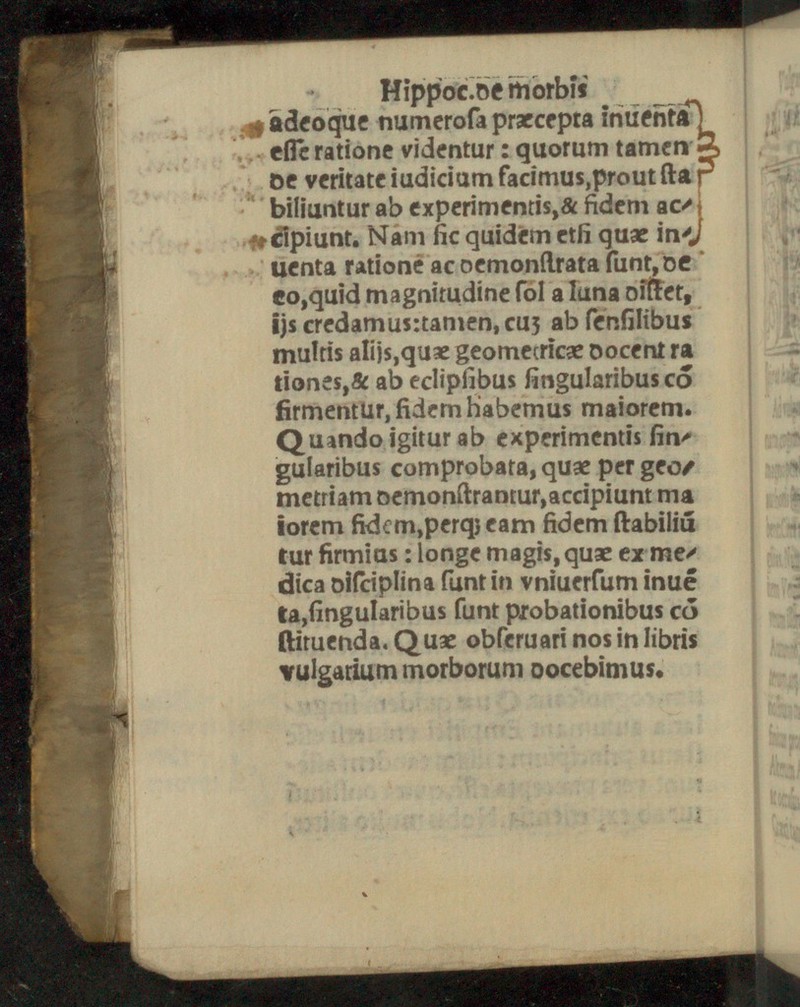 Hippoc.de morbis
adeoque numerosa præcepta inuenta
esse ratione videntur : quorum tamen
de veritate iudicium facimus,prout sta
biliuntur ab experimentis,& fidem ac⸗
cipiunt. Nam sic quidem etsi quæ in⸗
uenta rationé ac demonstrata sunt, de
eo,quid magnitudine sol a luna distet,
ijs credamus:tamen, cuꝫ ab sensilibus
multis alijs,quæ geometricæ docent ra
tiones,& ab eclipsibus singularibus cō
firmentur, fidem habemus maiorem.
Quando igitur ab experimentis sin⸗
gularibus comprobata, quæ per geo⸗
metriam demonstrantur,accipiunt ma
iorem fidem,perqꝫ eam fidem stabiliū
tur firmius : longe magis, quæ ex me⸗
dica disciplina sunt in vniuersum inuē
ta,singularibus sunt probationibus cō
stituenda. Quæ obseruari nos in libris
vulgarium morborum docebimus.